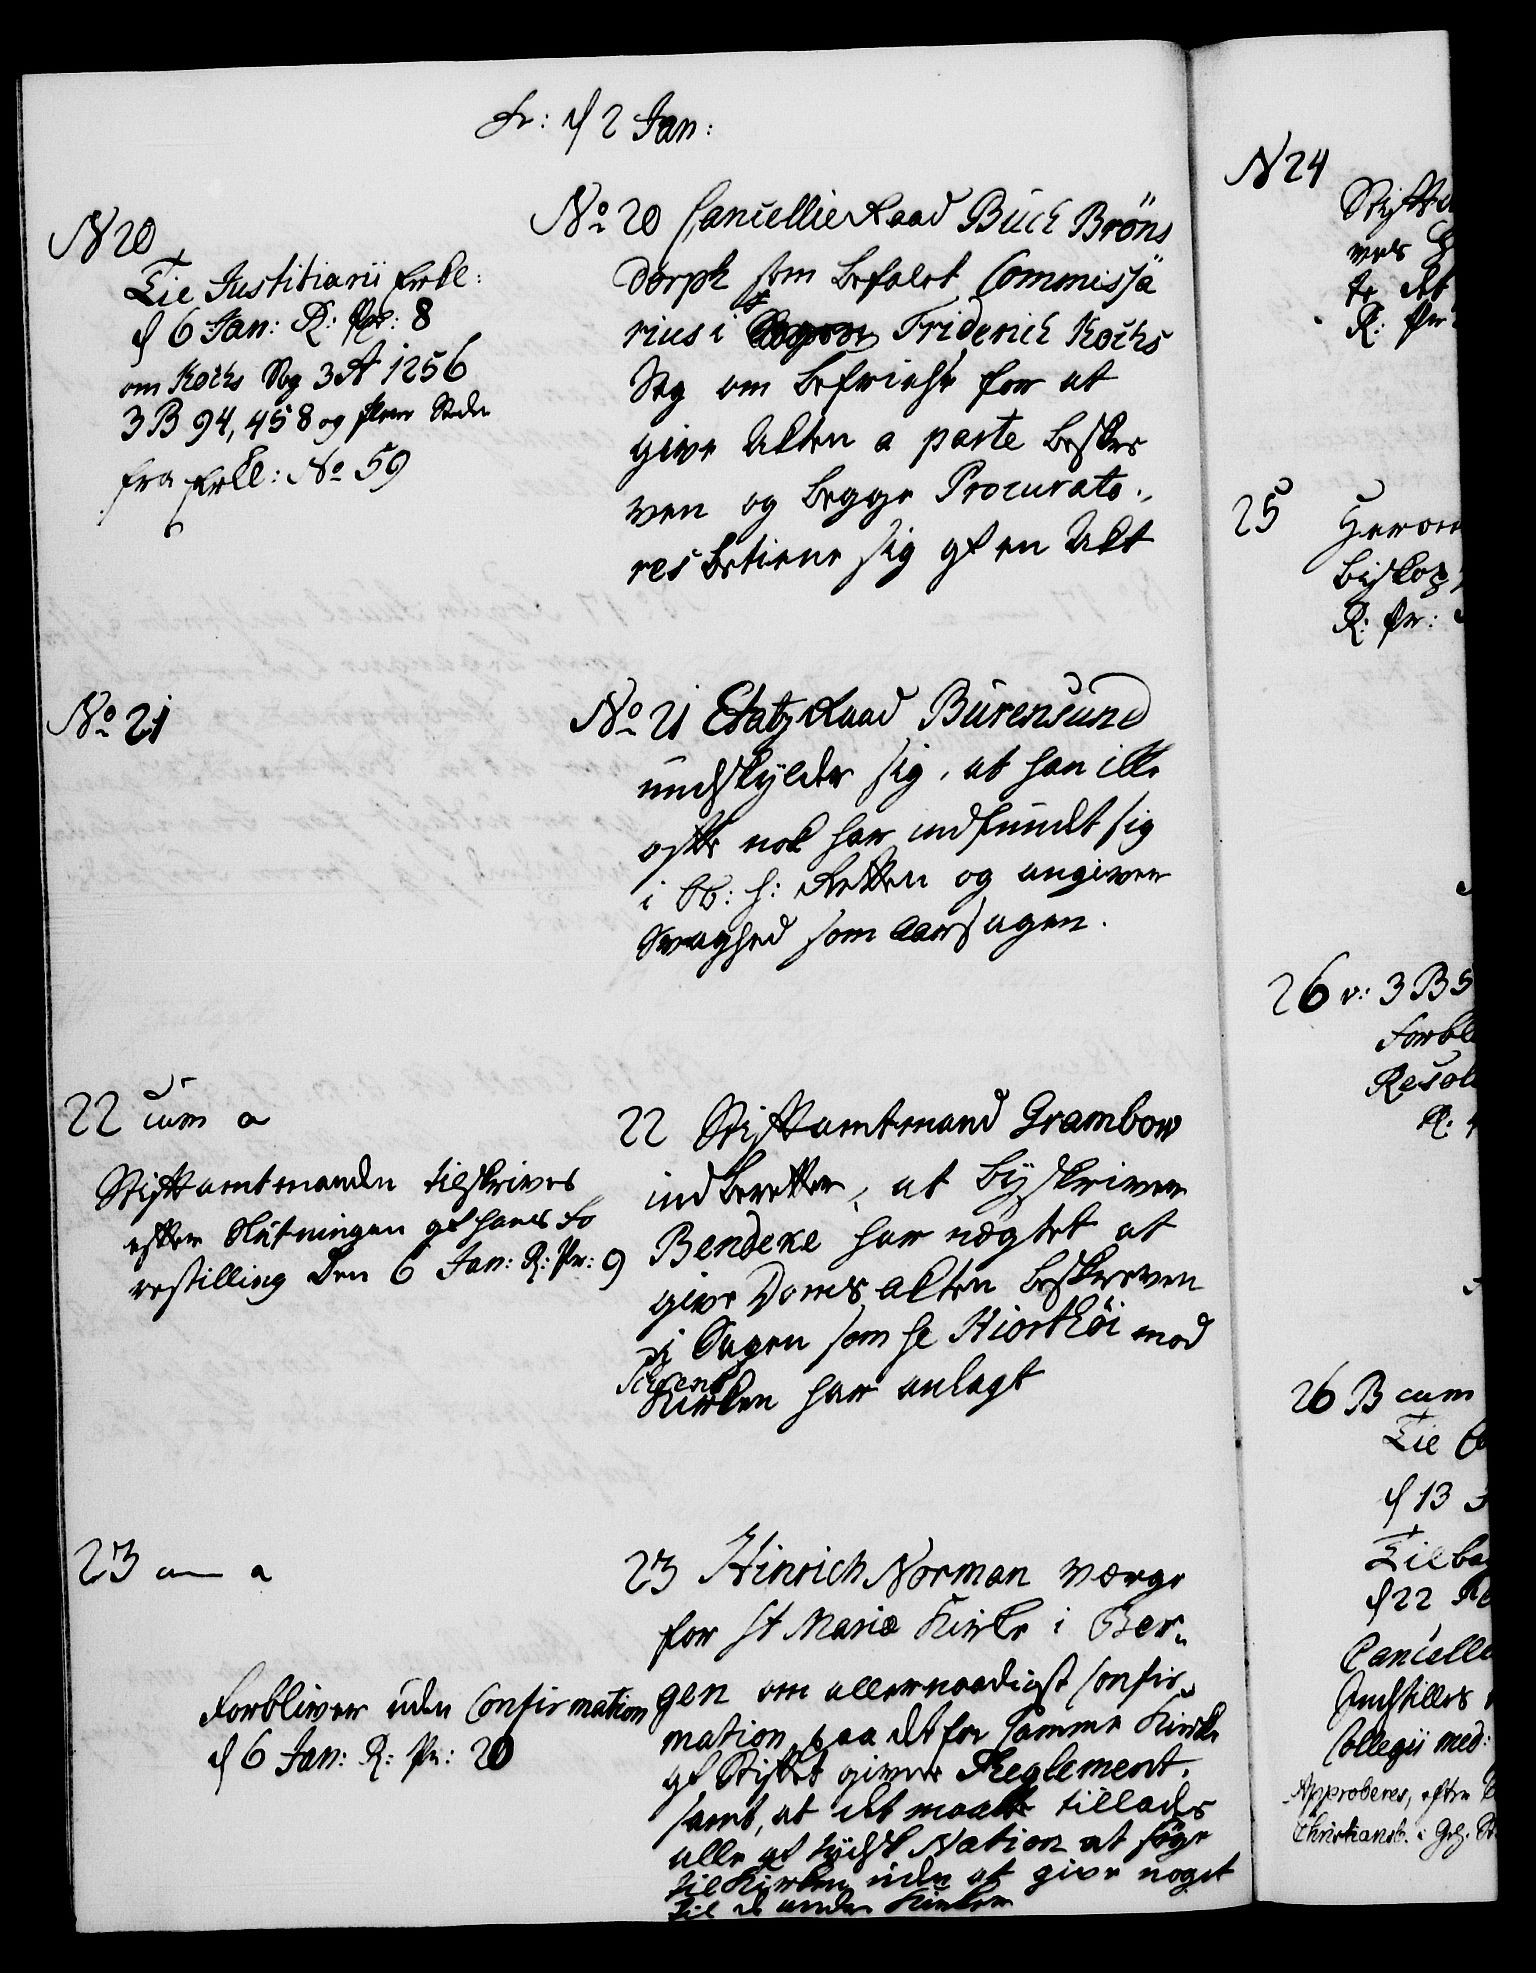 Fr: d 2 Jan:
N 20
Til Justitiarii Erkl:
d 6 Jan: R: Pr: 8
om Kochs Sag 3 A 1256
3 B 94, 458 og flere Steder
fra Erkl: No 59
No 20 Cancellie Raad Buch Bröns
dorph som befalet Commissa
rius i Friderich Kochs
Sag om befrielse for at
give Acten a parte beskre
ven og begge Procurato.,
res betiene sig af en Act
No 21
No 21 Etatz Raad Bürensund
undskylder sig, at han icke
ofte nok har indfundet sig
i h: Retten og angiver
Svaghed som Aarsagen.
22 cum a
Stiftamtmanden tilskrives
efter Slutningen af hans Fo
restilling den 6 Jan: R: Pr: 9
22 Stiftamtmand Grambow
indberetter, at byskriver
Bendeke har nægtet at
give Doms acten beskreven
i Sagen som Hr Hiorthöi mod
Kirken har anlagt
23 cum a
Forbliver uden Confirmation
d 6 Jan: R: Pr: 20
23 Hinrich Norman værge
for St Mariæ Kirke i Ber„
gen om allernaadigst Confir„
mation paa det for samme Kirke
af Stiftet givne Reglement.
samt, at det maatte tillades
alle af tydsk Nation at søge
til Kirken uden at give noget
til de andre Kirker
N 24
R: Pr
25
biskop
R: Pr:
26 v: 3 B 5
Forbl
Resol
R:
26 B cum
Til
d 13
Tilba
d 22
Cancelli
Indstilles
Collegii med:
Approberes, efter
Christiansb. i